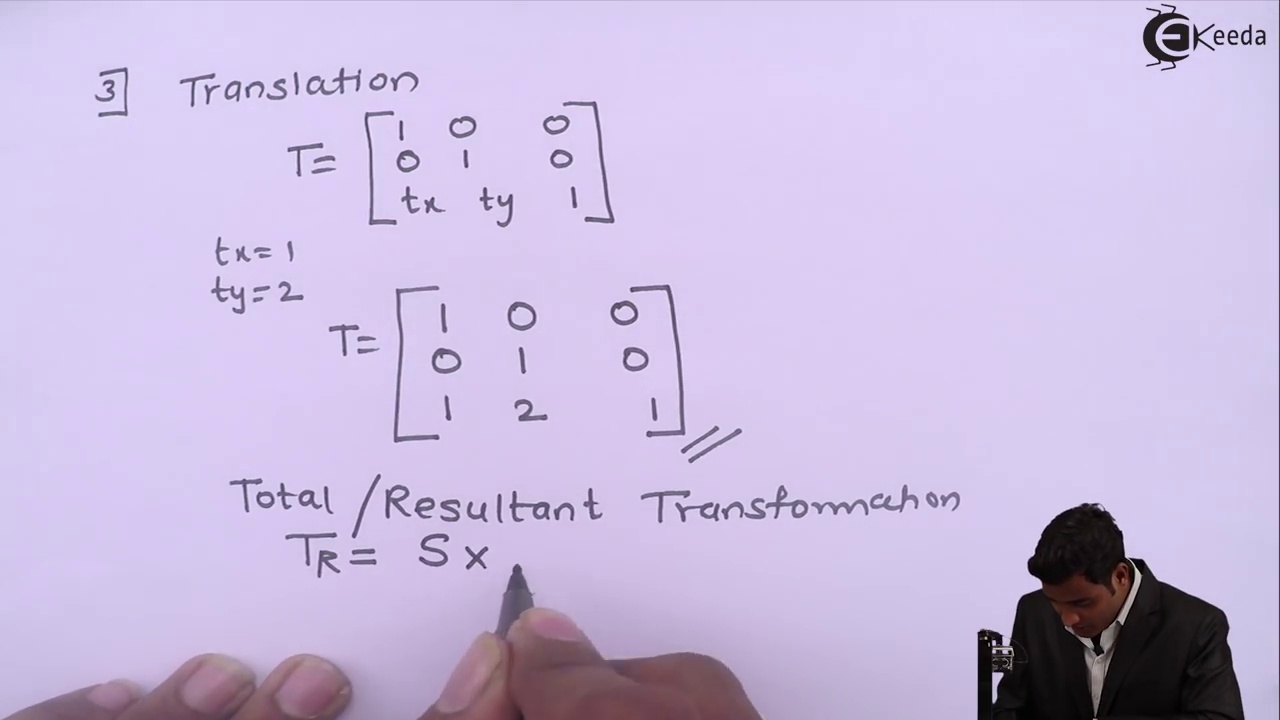 EKeeda
3] Translation
T= [ 1 0 0
0 1 0
tx ty 1 ]
tx= 1
ty= 2
T= [ 1 0 0
0 1 0
1 2 1 ] //
Total / Resultant Transformation
TR = S x